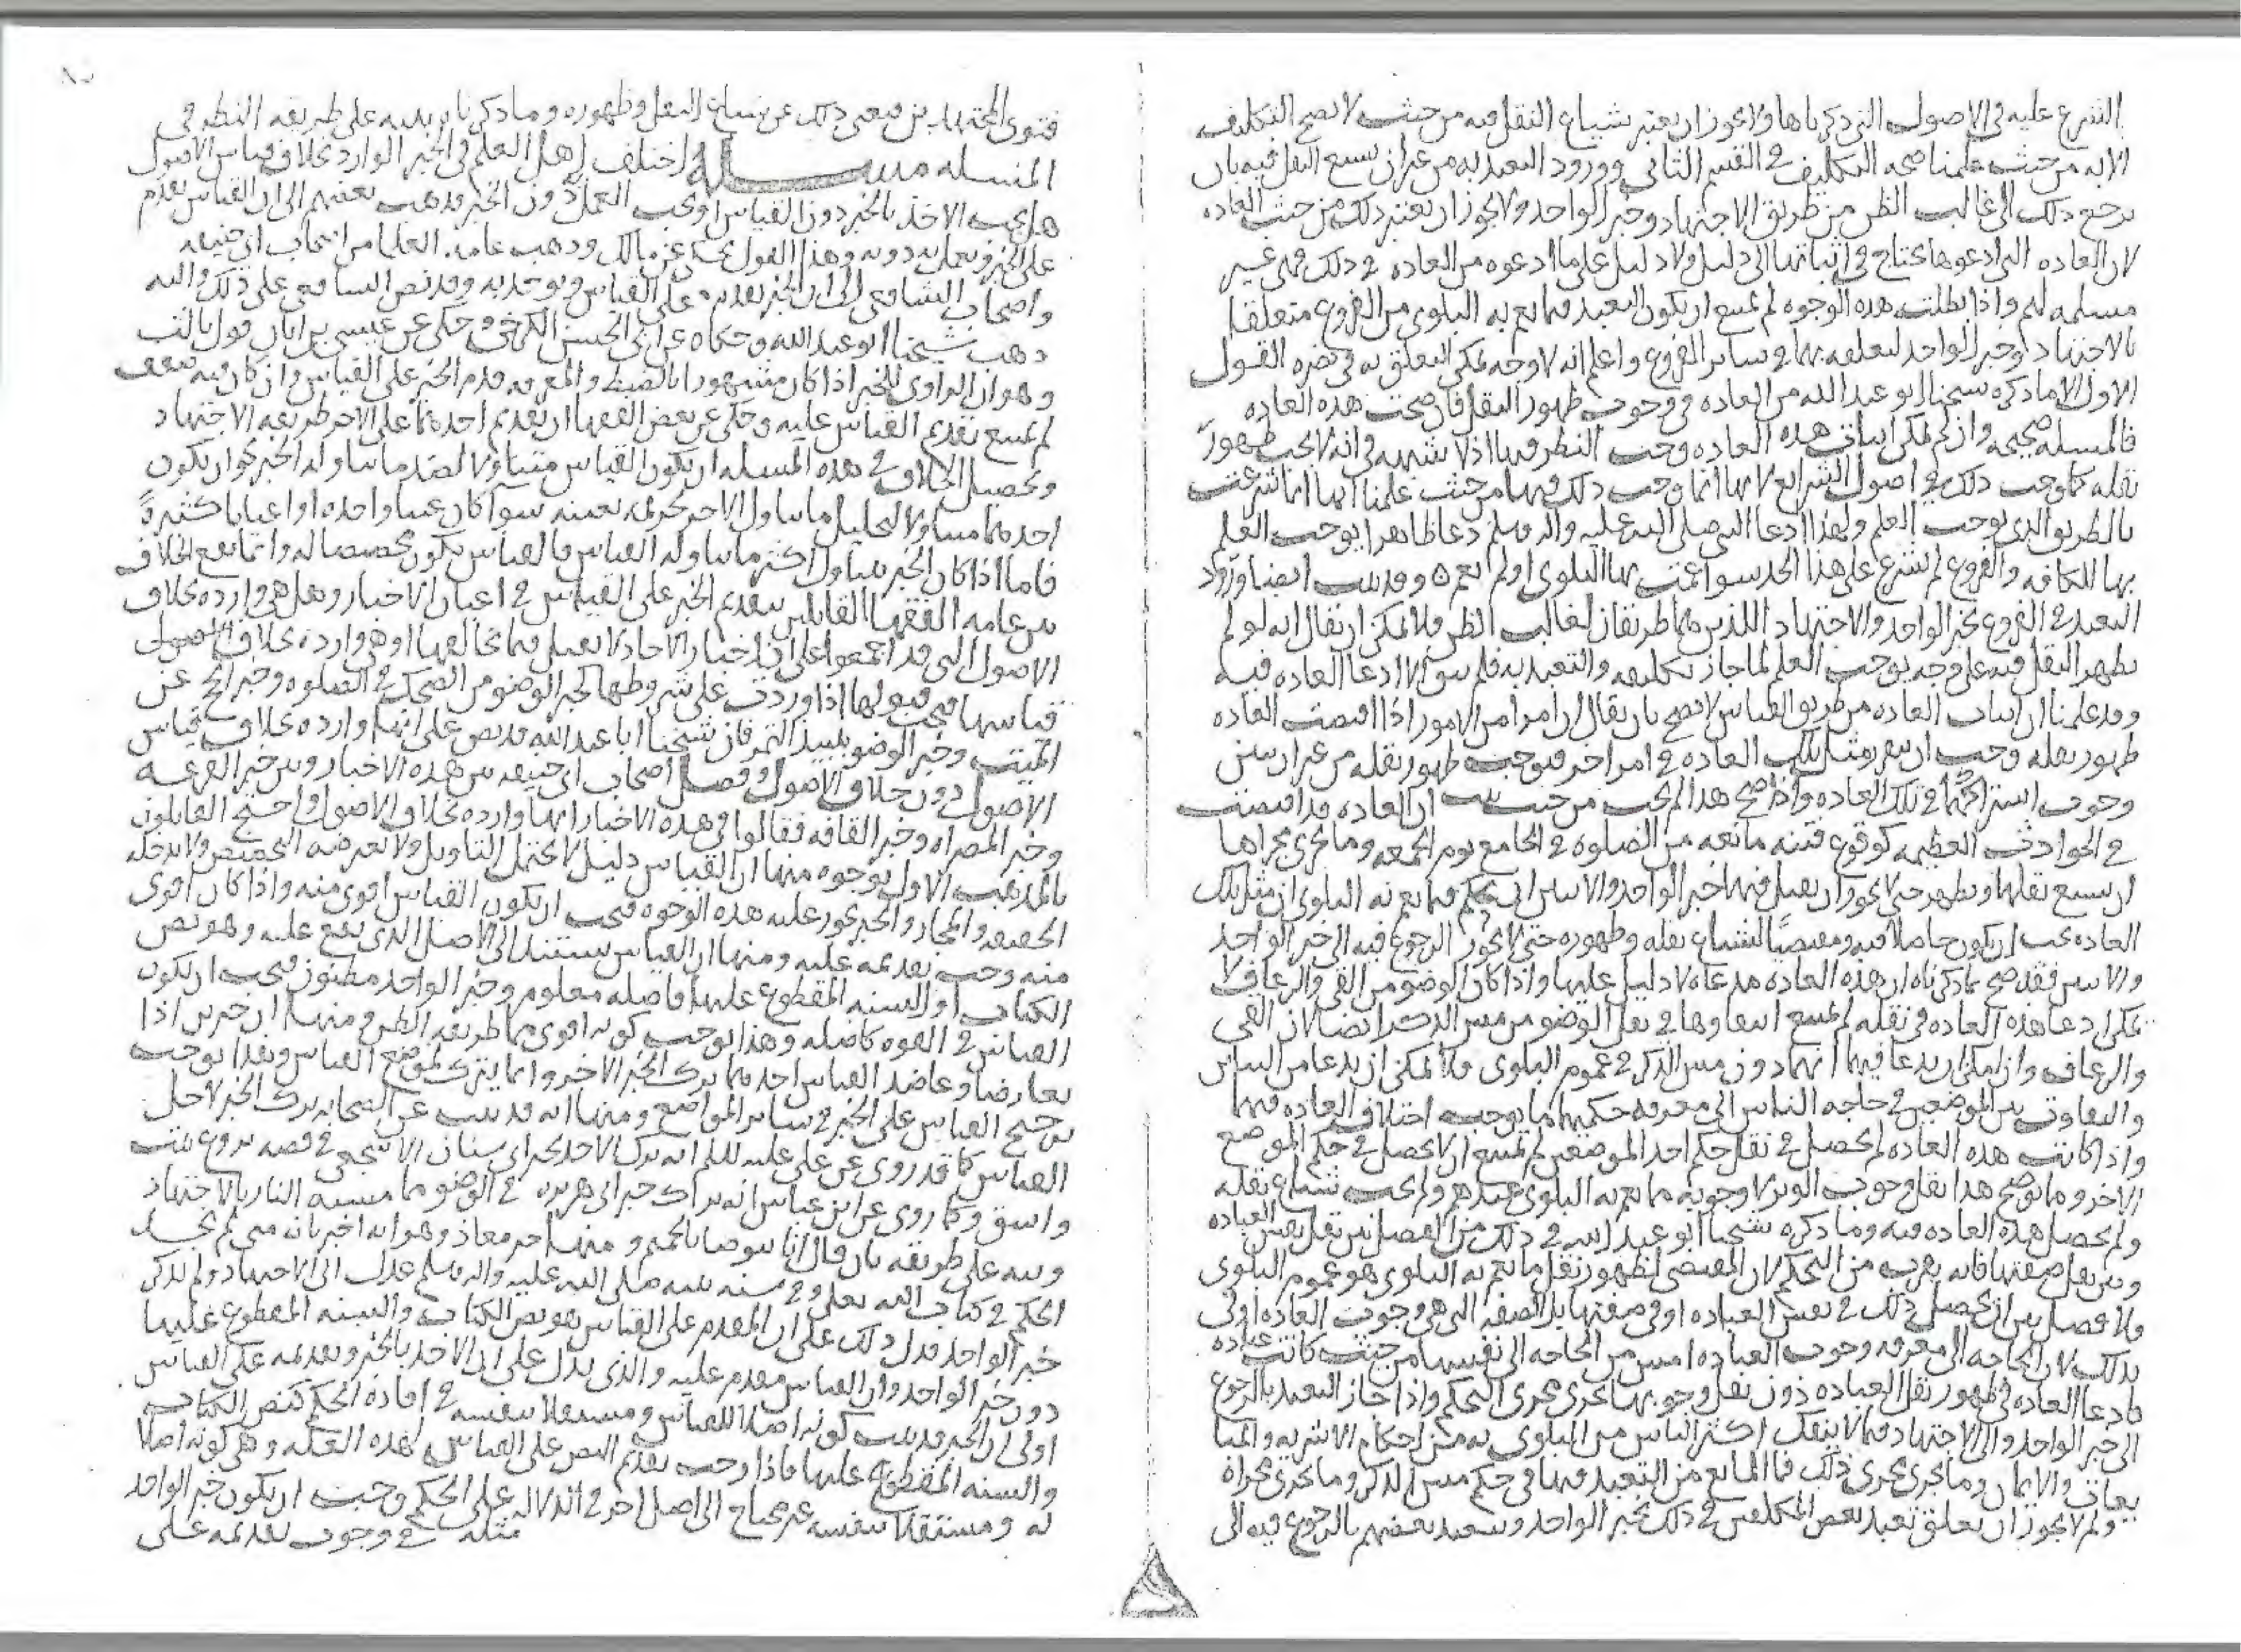 الشرع عليه في الاصول التي ذكرناها ولا يجوز ان يعتبر شياع النقل فيه من حيث لا يصح التكليف
الا به من حيث علمنا صحه التكليف في القسم الثاني وورود التعبد به من غير ان يسيع النقل فيه بان
يرجع ذلك الى غالب الظن من طريق الاجتهاد وخبر الواحد ولا يجوز ان يعتبر ذلك من حيث العاده
لان العاده التي ادعوها يحتاج في اثباتها الى دليل ولا دليل على ما ادعوه من العاده في ذلك فهي غير
مسلمه لهم واذا بطلت هذه الوجوه لم يمتنع ان يكون التعبد فيما يعم به البلوى من الفروع متعلقا
بالاجتهاد او خبر الواحد لتعلقه بهما في سائر الفروع واعلم انه لا وجه يمكن التعلق به في نصره القول
الاول الا ما ذكره شيخنا ابو عبد الله من العاده في وجوب ظهور النقل فان صحت هذه العاده
فالمسله صحيحه وان لم يمكن اثبات هذه العاده وجب النظر فيها اذ لا شبهه في انه لا يجب ظهور
نقله كما وجب ذلك في اصول الشرائع لانها انما وجب ذلك فيها من حيث علمنا انها انما شرعت
بالطريق الذي يوجب العلم ولهذا دعا النبي صلى الله عليه واله وسلم دعا ظاهرا يوجب العلم
بها للكافه والفروع لم تشرع على هذا الحد سوا عمت بها البلوى او لم تعم ٥ وقد ثبت ايضا ورود
التعبد في الفروع بخبر الواحد والاجتهاد اللذين هما طريقان لغالب الظن فلا يمكن ان يقال انه لو لم
يظهر النقل فيه على وجه يوجب العلم لما جاز تكليفه والتعبد به فلم يبق الا ادعا العاده فيه
وقد علمنا ان اثبات العاده من طريق القياس لا يصح بان يقال ان امرا من الامور اذا اقتضت العاده
ظهور نقله وجب ان يتقرر مثل تلك العاده في امر اخر فيوجب ظهور نقله من غير ان يتبين
وجوب اشتراكهما في تلك العاده واذا صح هذا لم يجب من حيث ثبت ان العاده قد اقتضت
في الحوادث العظيمه كوقوع فتنه مانعه من الصلوه في الجامع يوم الجمعه وما يجري مجراها
ان يسيع نقلها ويظهر حتى لا يجوز ان يقبل فيها خبر الواحد والاثنين ان يحكم فيما يعم به البلوى ان مثل تلك
العاده يجب ان يكون حاصلا فيه ومقتضيا لشياع نقله وظهوره حتى لا يجوز الرجوع فيه الى خبر الواحد
والاثنين فقد صح بما ذكرناه ان هذه العاده مدعاه لا دليل عليها واذا كان الوضو من القي والرعاف لا
يمكن ادعا هذه العاده في نقله لم يمتنع انتفاوها في نقل الوضو من مس الذكر ايضا لان القي
والرعاف وان امكن ان يدعا فيهما انهما دون مس الذكر في عموم البلوى فلا يمكن ان يدعا من التباين
والتفاوت بين الموضعين في حاجه الناس الى معرفه حكمهما ما يوجب اختلاف العاده فيهما
واذا كانت هذه العاده لم تحصل في نقل حكم احد الموضعين لم يمتنع ان لا تحصل في حكم الموضع
الاخر ومما يوضح هذا نقل وجوب الوتر لا وجوبه مما يعم به البلوى عندهم ولم يجب شياع نقله
ولم تحصل هذه العاده فيه وما ذكره شيخنا ابو عبد الله في ذلك من الفصل بين نقل نفس العباده
وبين نقل صفتها فانه يقرب من التحكم لان المقتضي لظهور نقل ما يعم به البلوى هو عموم البلوى
ولا فصل بين ان يحصل ذلك في نفس العباده او في صفتها بل الصفه التي هي وجوب العاده اولى
بذلك لان الحاجه الى معرفه وجوب العباده امس من الحاجه الى نفسها من حيث كانت عباده
فادعا العاده في ظهور نقل العباده دون نقل وجوبها يجري مجرى التحكم واذا جاز التعبد بالرجوع
الى خبر الواحد والى الاجتهاد فيما لا ينفك اكثر الناس من البلوى به من احكام الاشربه والمبا
يعات والايمان وما يجري مجرى ذلك فما المانع من التعبد فيها وفي حكم مس الذكر وما يجري مجراه
ولم لا يجوز ان يعلق تعبد بعض المكلفين في ذلك بخبر الواحد وتعبد بعضهم بالرجوع فيه الى
فتوى المجتهدين فيغني ذلك عن شياع النقل وظهوره وما ذكرناه تنبيه على طريقه النظر في
المسله مســـله اختلف اهل العلم في الخبر الوارد بخلاف قياس الاصول
هل يجب الاخذ بالخبر دون القياس او يجب العمل دون الخبر فذهب بعضهم الى ان القياس يقدم
على الخبر ويعمل به دونه وهذا القول يحكى عن مالك وذهب عامه العلما من اصحاب ابي حنيفه
واصحاب الشافعي الى ان الخبر يقدم على القياس ويوخذ به وقد نص الشافعي على ذلك واليه
ذهب شيخنا ابو عبد الله وحكاه عن ابي الحسن الكرخي وحكى عن عيسى بن ابان قول ثالث
وهو ان الراوي للخبر اذا كان مشهورا بالضبط والمعرفه قدم الخبر على القياس وان كان فيه ضعف
لم يمتنع تقديم القياس عليه وحكى عن بعض الفقها ان تقديم احدهما على الاخر طريقه الاجتهاد
وتحصيل الخلاف في هذه المسله ان يكون القياس متناولا لضد ما تناوله الخبر نحو ان يكون
احدهما متناولا لتحليل ما تناول الاخر تحريمه بعينه سوا كان عينا واحده او اعيانا كثيرة
فاما اذا كان الخبر يتناول اكثر ما تناوله القياس فالقياس يكون مخصصا له وانما يقع الخلاف
بين عامه الفقها القائلين بتقديم الخبر على القياس في اعيان الاخبار وهل هي وارده بخلاف
الاصول التي قد اجمعوا على ان اخبار الاحاد لا تقبل فيما يخالفها او هي وارده بخلاف الاصول
قياسها فيجب قبولها اذا وردت على شروطها كخبر الوضو من الضحك في الصلوه وخبر الحج عن
الميت وخبر الوضو بنبيذ التمر فان شيخنا ابا عبد الله قد نص على انها وارده بخلاف قياس
الاصول دون خلاف الاصول وفصل اصحاب ابي حنيفه بين هذه الاخبار وبين خبر القرعه
وخبر المصراه وخبر القافه فقالوا في هذه الاخبار انها وارده بخلاف الاصول واحتج القائلون
بالمذهب الاول بوجوه منها ان القياس دليل لا يحتمل التاويل ولا يعترضه التخصيص ولا يدخله
الحقيقه والمجاز والخبر يجوز عليه هذه الوجوه فيجب ان يكون القياس اقوى منه واذا كان اقوى
منه وجب تقديمه عليه ومنها ان القياس يستند الى الاصل الذي يقع عليه وهو نص
الكتاب او السنه المقطوع عليها فاصله معلوم وخبر الواحد مظنون فيجب ان يكون
القياس في القوه كاصله وهذا يوجب كونه اقوى مما طريقه الظن ومنها ان خبرين اذا
تعارضا وعاضد القياس احدهما يترك الخبر الاخر وانما يترك لموضع القياس وهذا يوجب
ترجيح القياس على الخبر في سائر المواضع ومنها انه قد ثبت عن الصحابه ترك الخبر لاجل
القياس كما قد روي عن علي عليه السلم انه ترك الاخذ بخبر ابي سنان الاشجعي في قصه بروع بنت
واشق وكما روي عن ابن عباس انه ترك خبر ابي هريره في الوضو مما مسته النار بالاجتهاد
ونبه على طريقه بان قال انا نتوضا بالحميم ومنها خبر معاذ وهو انه اخبر بانه متى لم يجد
الحكم في كتاب الله تعلى وفي سنه نبيه صلى الله عليه واله وسلم عدل الى الاجتهاد ولم يذكر
خبر الواحد فدل ذلك على ان المقدم على القياس هو نص الكتاب والسنه المقطوع عليها
دون خبر الواحد وان القياس مقدم عليه والذي يدل على ان الاخذ بالخبر وتقديمه على القياس
اولى ان الخبر قد ثبت كونه اصلا للقياس ومستقلا بنفسه في افادة الحكم كنص الكتاب
والسنه المقطوع عليها فاذا وجب تقديم النص على القياس لهذه العله وهي كونه اصلا
له ومستقلا بنفسه غير محتاج الى اصل اخر في الدلاله على الحكم وجب ان يكون خبر الواحد
مثله في وجوب تقديمه على